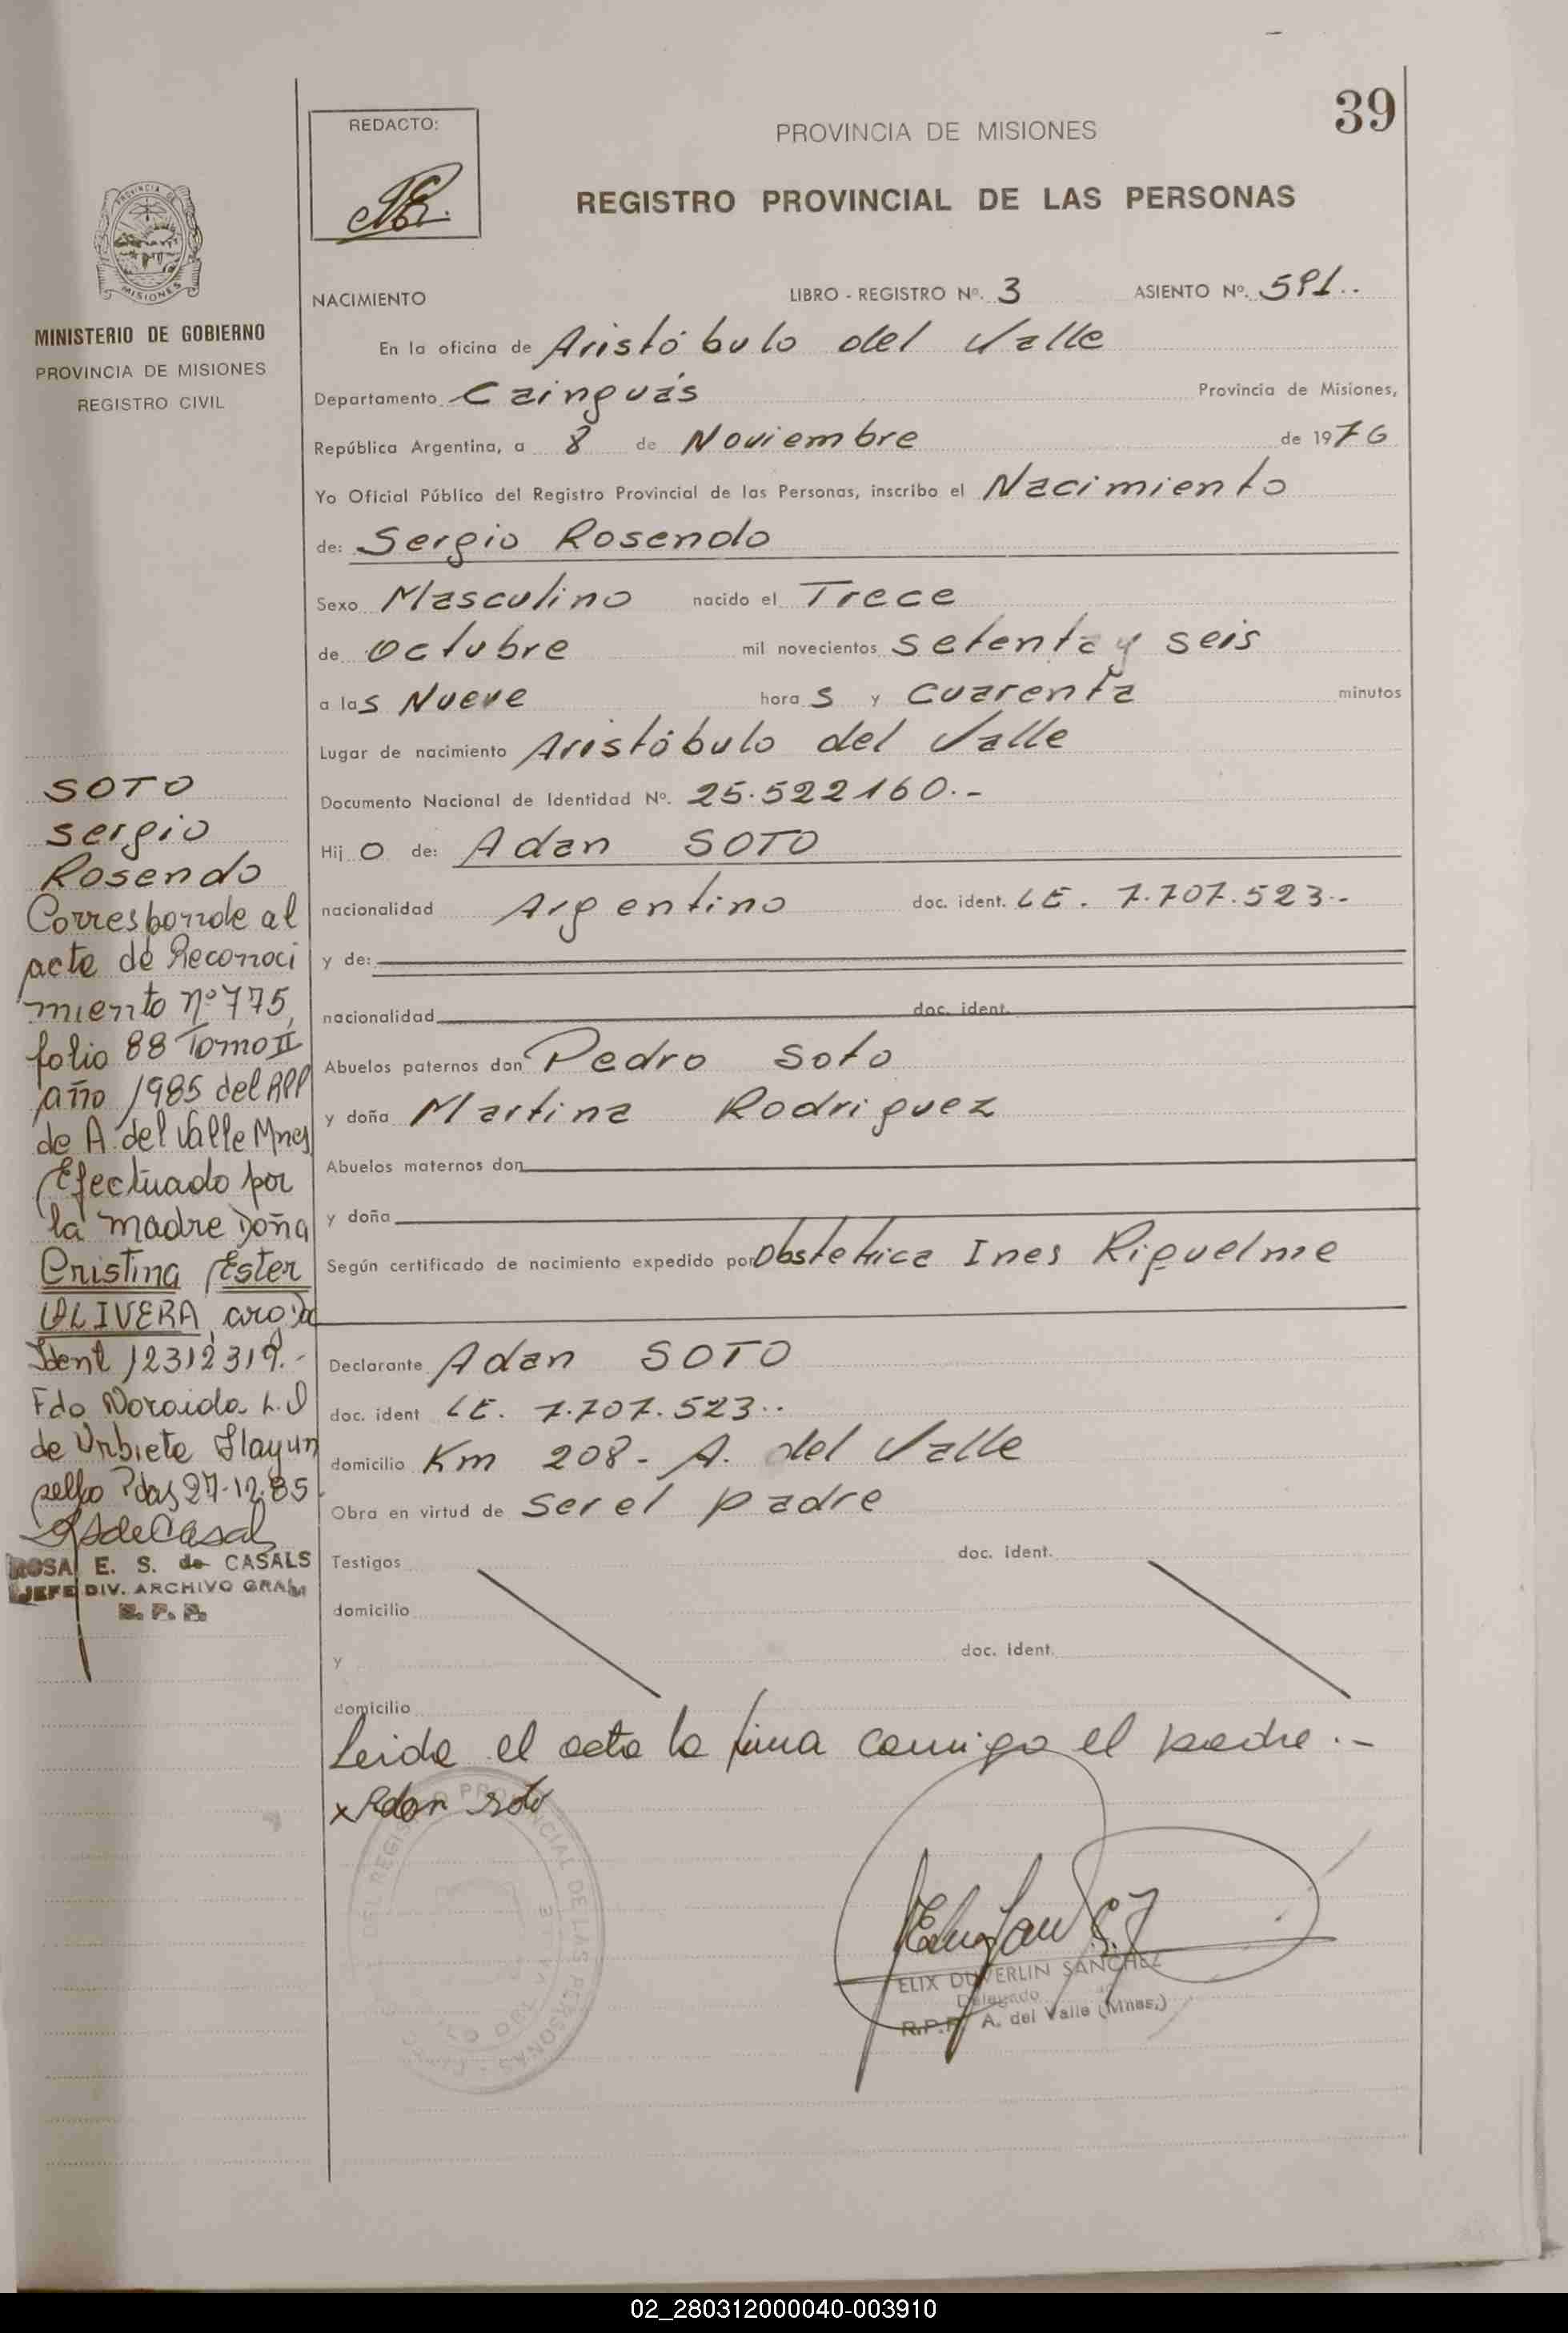 39
REDACTO:
PROVINCIA DE MISIONES
REGISTRO PROVINCIAL DE LAS PERSONAS
PROVINCIA DE
MISIONES
MINISTERIO DE GOBIERNO
PROVINCIA DE MISIONES
REGISTRO CIVIL
NACIMIENTO LIBRO - REGISTRO Nº. 3 ASIENTO Nº. 591..
En la oficina de Aristóbulo del Valle
Departamento Cainguás Provincia de Misiones,
República Argentina, a 8 de Noviembre de 1976
Yo Oficial Público del Registro Provincial de las Personas, inscribo el Nacimiento
de: Sergio Rosendo
Sexo Masculino nacido el Trece
de Octubre mil novecientos setenta y seis
a las Nueve horas y cuarenta minutos
Lugar de nacimiento Aristóbulo del Valle
Documento Nacional de Identidad Nº. 25.522160.-
Hijo de: Adan SOTO
nacionalidad Argentino doc. ident. LE. 7.707.523.-
y de:
nacionalidad doc. ident.
Abuelos paternos don Pedro Soto
y doña Martina Rodriguez
Abuelos maternos don
y doña
Según certificado de nacimiento expedido por Obstetrica Ines Riquelme
Declarante Adan SOTO
doc. ident LE. 7.707.523..
domicilio Km 208- A. del Valle
Obra en virtud de ser el padre
Testigos doc. ident.
domicilio
y doc. ident.
domicilio
Leida el acta la firma conmigo el padre.-
x Adan soto
SOTO
Sergio
Rosendo
Corresponde al
acta de Reconoci
miento nº 775,
folio 88 Tomo II
año 1985 del RPP
de A. del Valle Mnes
Efectuado por
la madre Doña
Cristina Ester
OLIVERA,
Ident 12312319.-
Fdo Noraida L. S
de Urbieta
sello Pdas 27-12-85
ROSA E. S. de CASALS
JEFE DIV. ARCHIVO GRAL
R. P. P.
DEL REGISTRO PROVINCIAL DE LAS PERSONAS
ELIX DUVERLIN SANCHEZ
Delegado
R.P.P. A. del Valle (Mnes.)
02_280312000040-003910